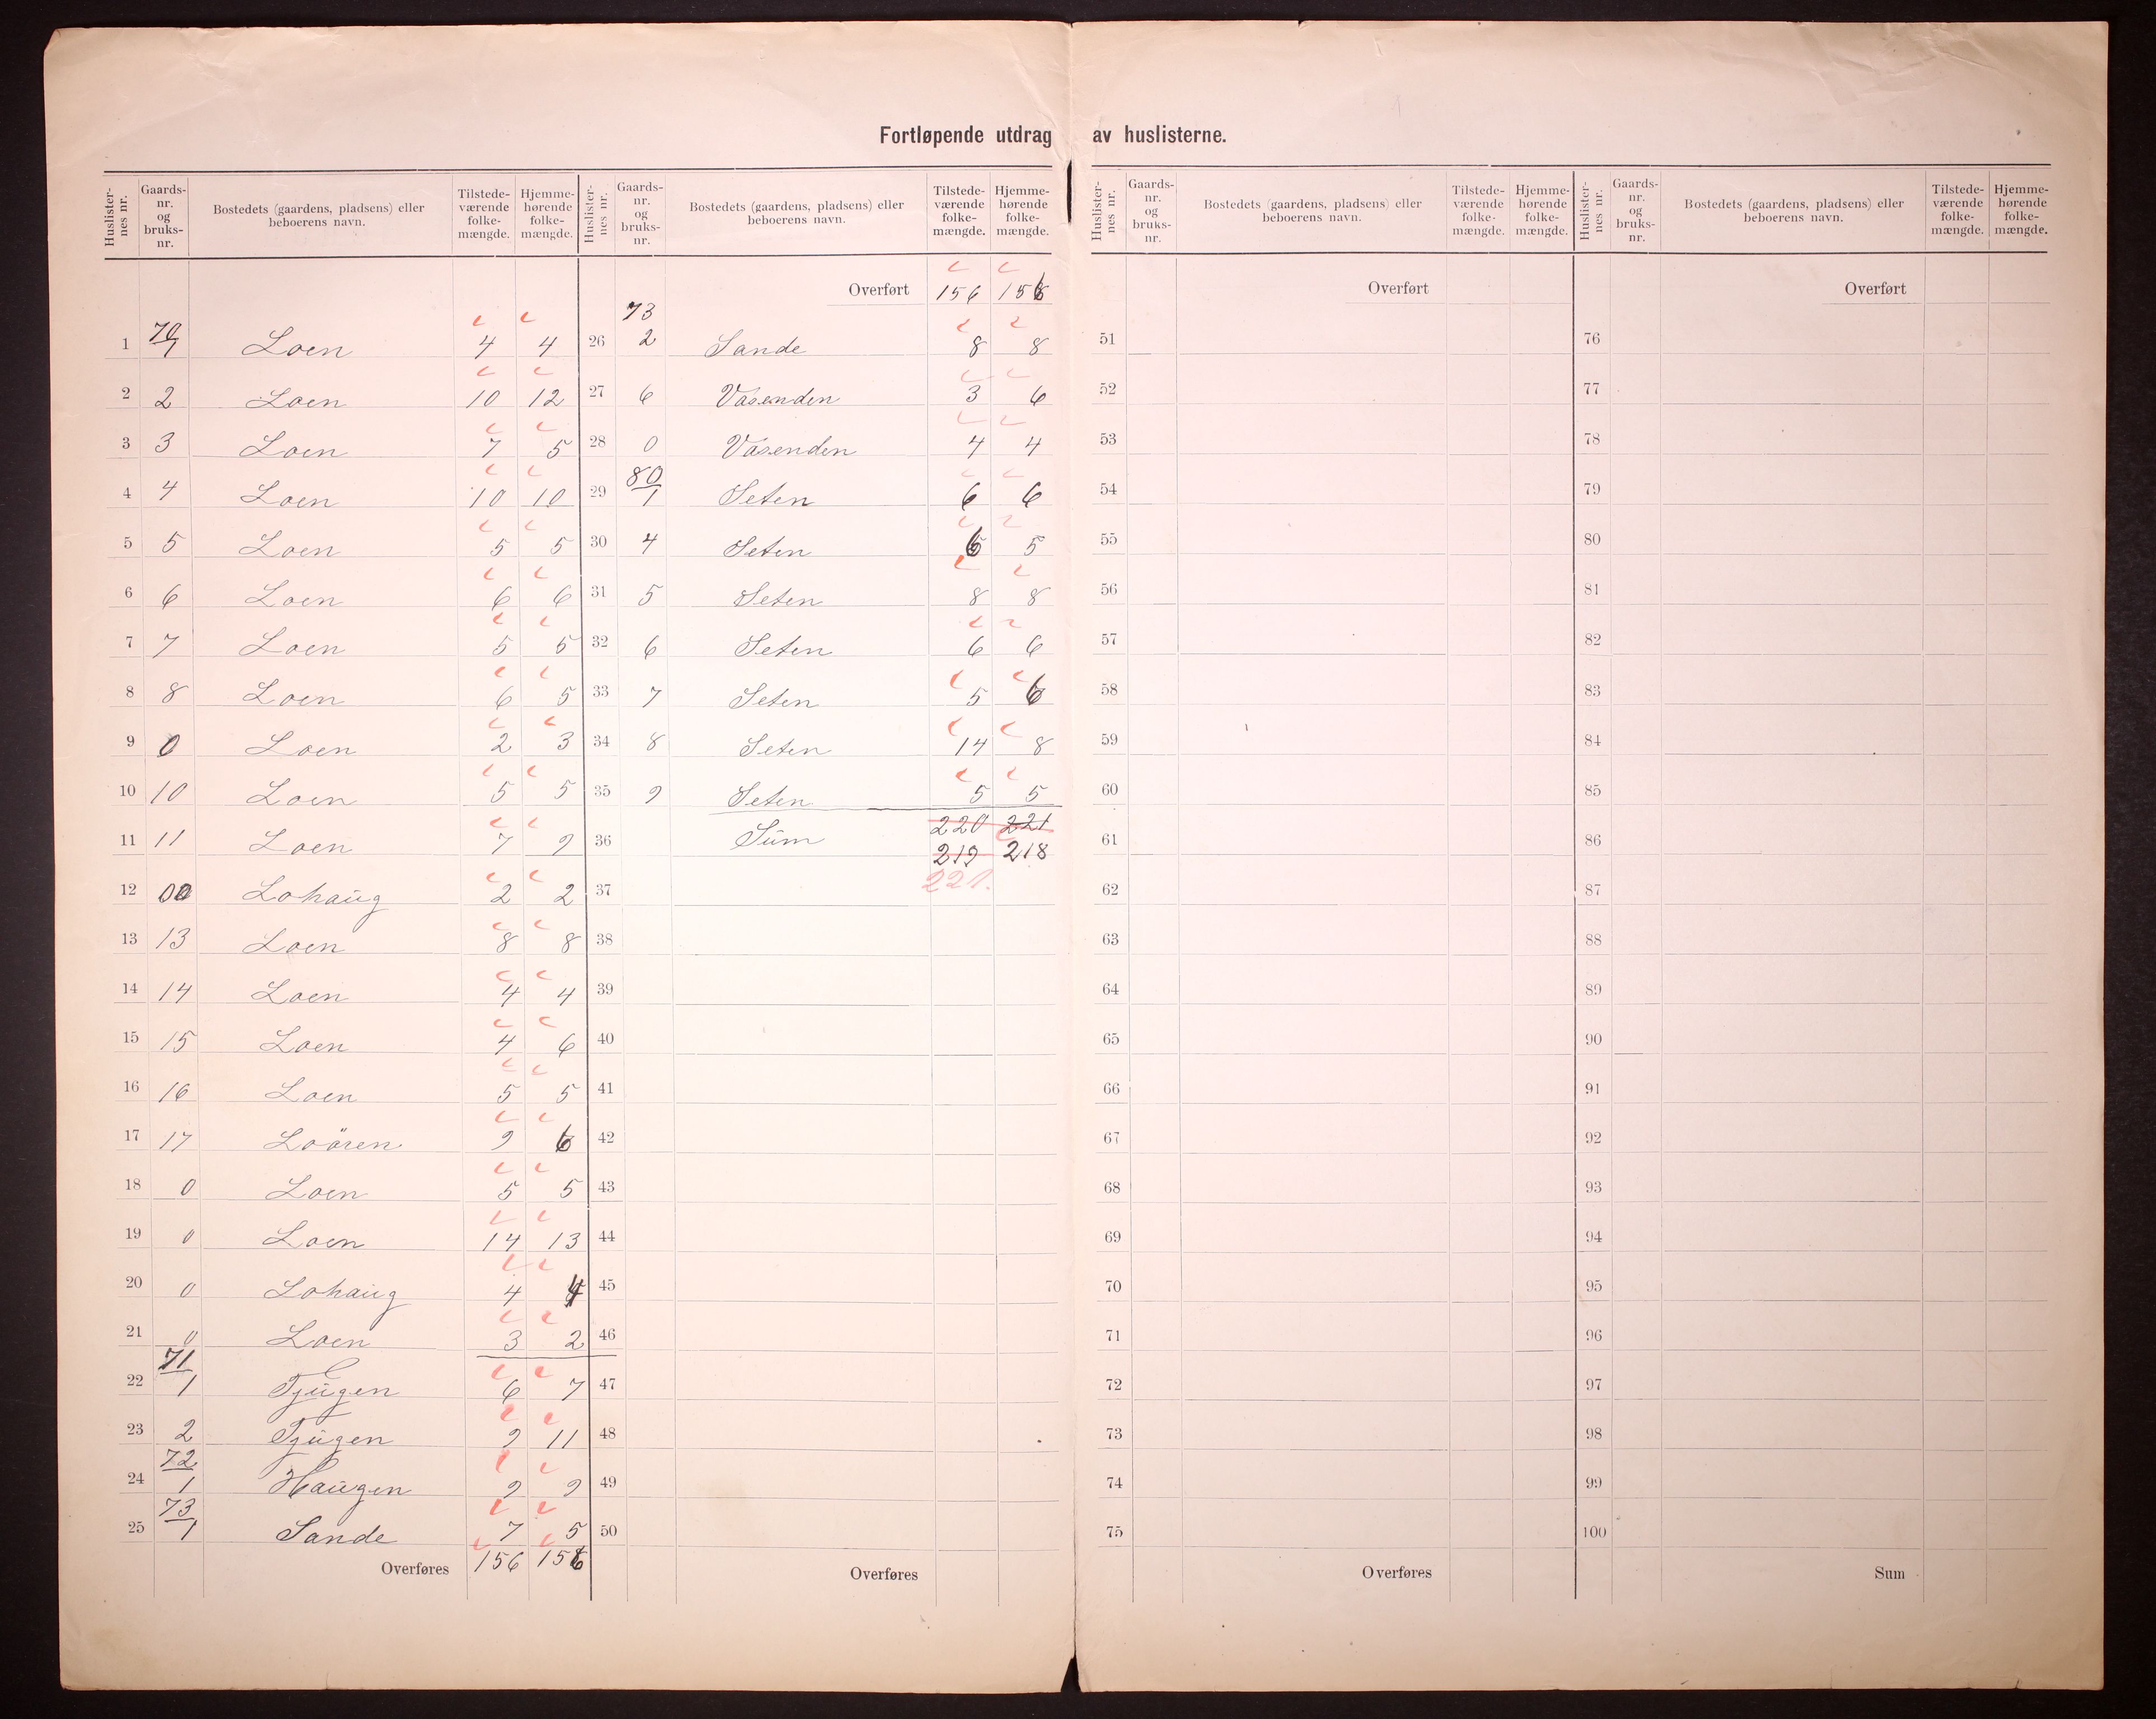 Fortløpende utdrag av huslisterne.
Huslisternes nr. | Gaards-nr. og bruks-nr. | Bostedets (gaardens, pladsens) eller beboerens navn. | Tilstede-værende folke-mængde. | Hjemme-hørende folke-mængde.
1 70/1 Loen 4 4
2 2 Loen 10 12
3 3 Loen 7 5
4 4 Loen 10 10
5 5 Loen 5 5
6 6 Loen 6 6
7 7 Loen 5 5
8 8 Loen 6 5
9 0 Loen 2 3
10 10 Loen 5 5
11 11 Loen 7 9
12 Lohaug 2 2
13 13 Loen 8 8
14 14 Loen 4 4
15 15 Loen 4 6
16 16 Loen 5 5
17 17 Loören 9 6
18 0 Loen 5 5
19 0 Loen 14 13
20 0 Lohaug 4 4
21 0 Loen 3 2
22 71/1 Tjugen 6 7
23 2 Tjugen 9 11
24 72/1 Haugen 9 9
25 73/1 Sande 7 5
Overføres 156 156
Huslisternes nr. | Gaards-nr. og bruks-nr. | Bostedets (gaardens, pladsens) eller beboerens navn. | Tilstede-værende folke-mængde. | Hjemme-hørende folke-mængde.
Overført 156 156
26 73 2 Sande 8 8
27 6 Vasenden 3 6
28 0 Vasenden 4 4
29 80/1 Seten 6 6
30 4 Seten 6 5
31 5 Seten 8 8
32 6 Seten 6 6
33 7 Seten 5 6
34 8 Seten 14 8
35 9 Seten 5 5
36 Sum 220 221
219 218
37 221.
38
39
40
41
42
43
44
45
46
47
48
49
50
Overføres
Huslisternes nr. | Gaards-nr. og bruks-nr. | Bostedets (gaardens, pladsens) eller beboerens navn. | Tilstede-værende folke-mængde. | Hjemme-hørende folke-mængde.
Overført
51
52
53
54
55
56
57
58
59
60
61
62
63
64
65
66
67
68
69
70
71
72
73
74
75
Overføres
Huslisternes nr. | Gaards-nr. og bruks-nr. | Bostedets (gaardens, pladsens) eller beboerens navn. | Tilstede-værende folke-mængde. | Hjemme-hørende folke-mængde.
Overført
76
77
78
79
80
81
82
83
84
85
86
87
88
89
90
91
92
93
94
95
96
97
98
99
100
Sum